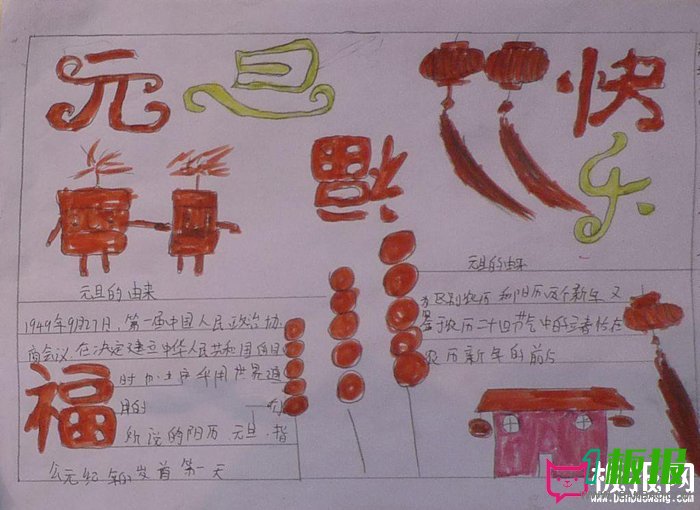 元旦
快乐
福
元旦的由来
1949年9月27日,第一届中国人民政治协
商会议,在决定建立中华人民共和国的同日
时 也决定采用世界通
用的
所说的阳历 元旦,指
公元纪年的岁首第一天
福
元旦的由来
为区别农历和阳历两个新年 又
农历二十四节气中的立春恰在
农历新年的前后
1板报
板报网
www.banbaowang.com